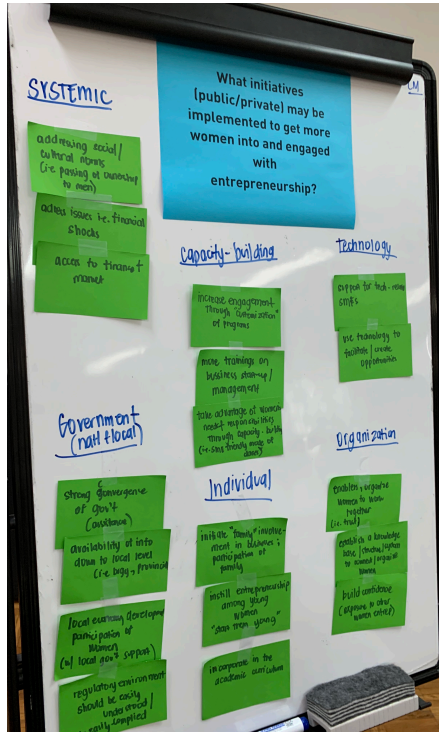 What initiatives
(public/private) may be
implemented to get more
women into and engaged
with
entrepreneurship?
CM
SYSTEMIC
addressing social/
cultural norms
(i.e. passing of ownership
to men)
adress issues i.e. financial
shocks
access to finance +
market
Capacity-building
increase engagement
through "customization"
of programs
more trainings on
business start-up/
management
take advantage of women
responsibilities
through capacity-
(i.e. sms friendly mode of
Technology
support for tech-
SMEs
use technology to
facilitate/create
opportunities
Government
(nat'l + local)
strong convergence
of gov't
(assistance)
availability of info
down to local level
(i.e. brgy, provincial
local economy development
participation of
women
(w/ local gov't support)
regulatory environment
should be easily
understood/
easily complied
Individual
initiate "family" involve-
ment in business;
participation of
family
instill entrepreneurship
among young
women
"start them young"
incorporate in the
academic curriculum
Organization
enablers, organize
women to work
together
(i.e.
establish a knowledge
base/structure/system
to women/
women
build confidence
(exposure to other
women entrep)